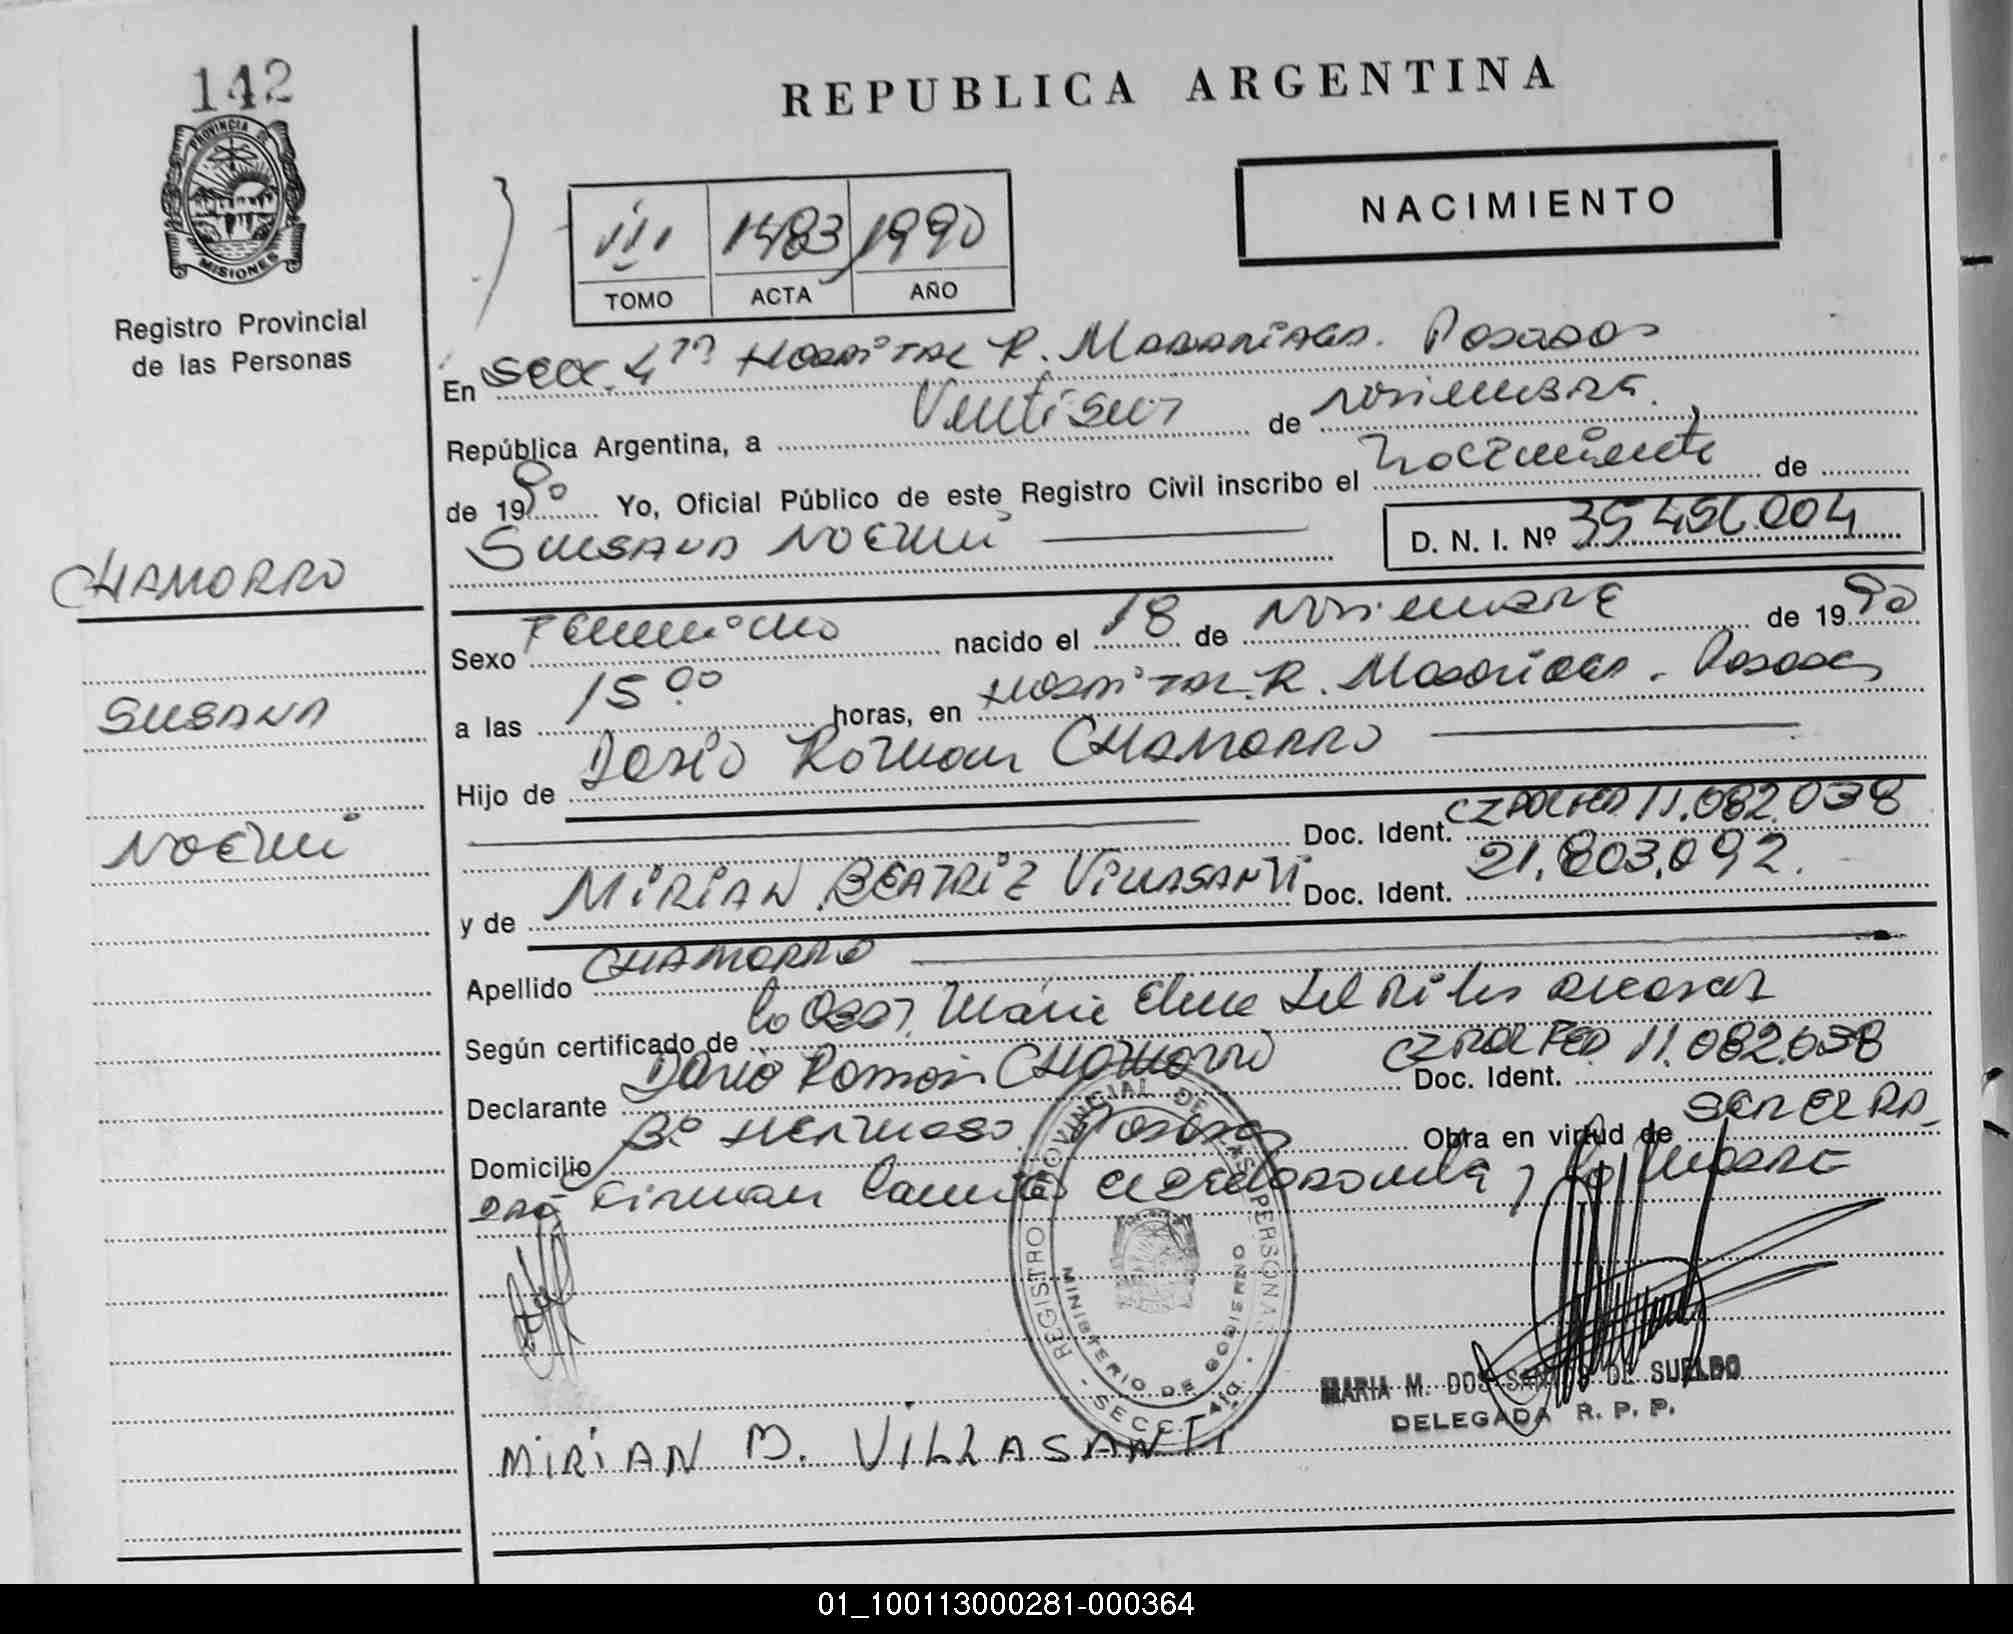 142
PROVINCIA DE
MISIONES
Registro Provincial
de las Personas
REPUBLICA ARGENTINA
NACIMIENTO
III 1483 1990
TOMO ACTA AÑO
En Secc. 4ta Hospital R. Madariaga. Posadas
República Argentina, a Ventiseis de noviembre.
de 1990 Yo, Oficial Público de este Registro Civil inscribo el nacimiento de
SUSANA NOEMI D. N. I. Nº 35.456.004
CHAMORRO
SUSANA
NOEMI
Sexo Femenino nacido el 18 de noviembre de 1990
a las 15 00 horas, en Hospital. R. Madariaga - Posadas
Hijo de Dario Roman CHAMORRO
Doc. Ident. CZ POL FED 11.082.038
y de MIRIAN BEATRIZ VILLASANTI Doc. Ident. 21.803.092.
Apellido CHAMORRO
Según certificado de la Obst. Maria Elena
Declarante Dario Roman CHAMORRO Doc. Ident. CZ POL FED. 11.082.038
Domicilio Bº Hermoso. Posadas Obra en virtud de SER EL PA-
DRE Firman la declarante y la madre
REGISTRO PROVINCIAL DE LAS PERSONAS
MINISTERIO DE GOBIERNO
MARIA M. DOS SANTOS DE SUELDO
DELEGADA R. P. P.
MIRIAN B. VILLASANTI
01_100113000281-000364